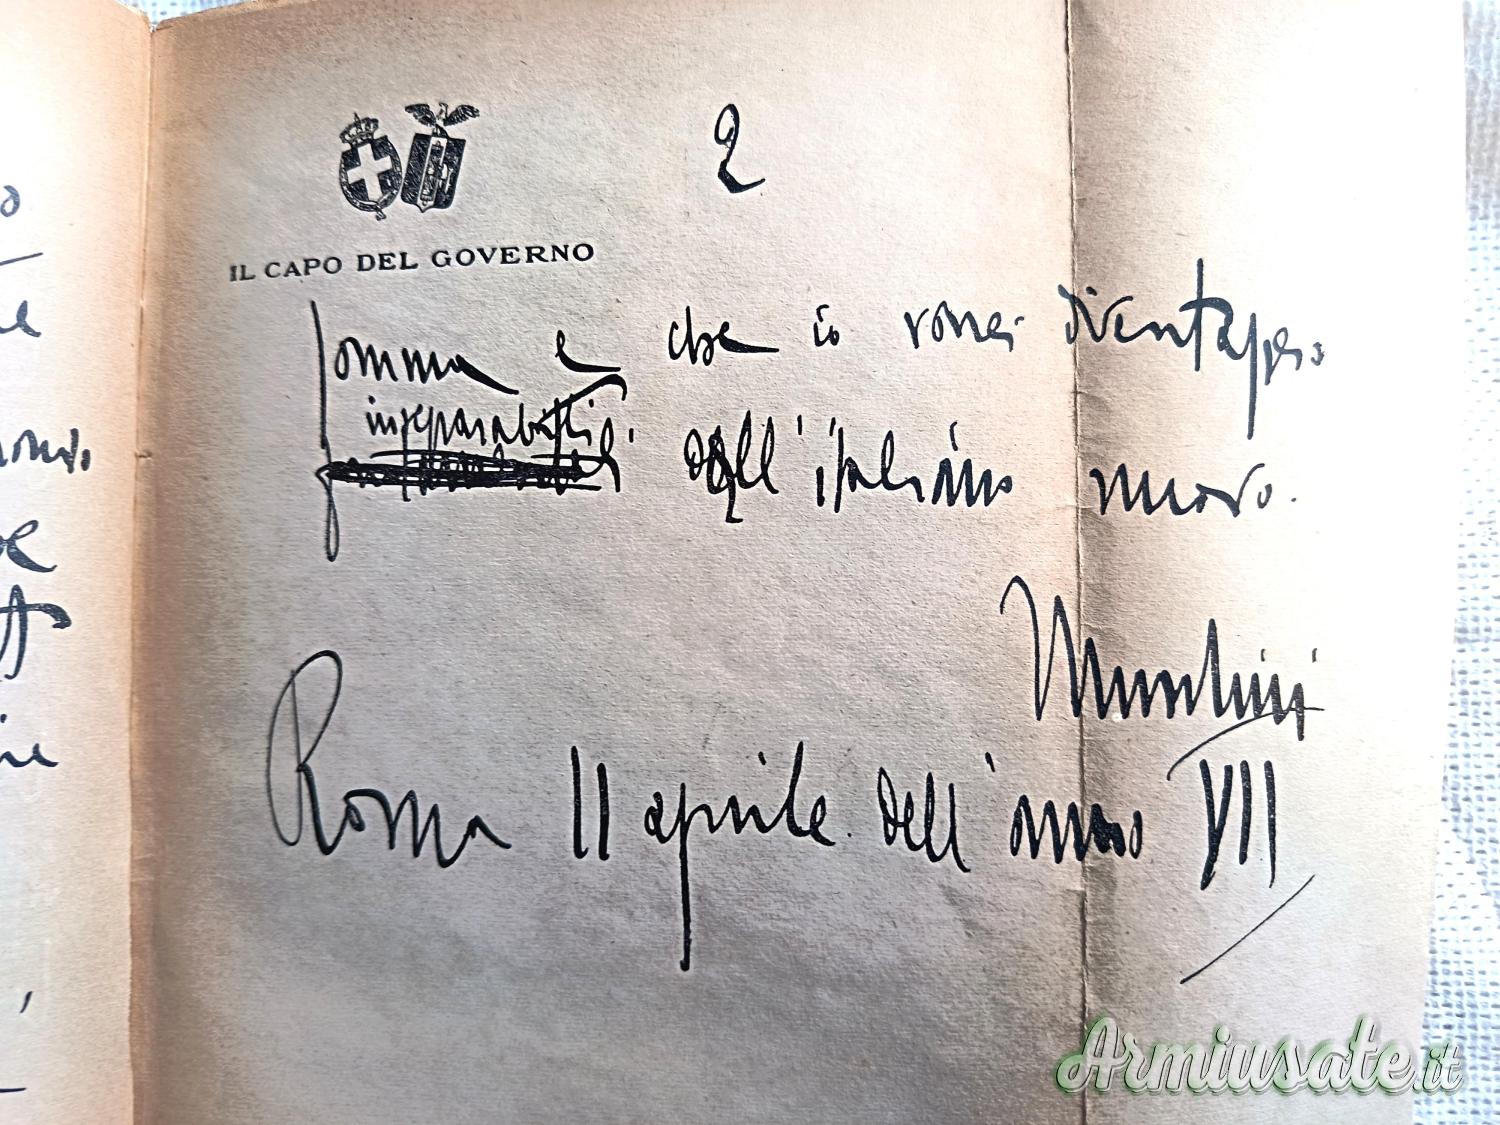 2
IL CAPO DEL GOVERNO
somma e che io vorrei diventassero
inseparabili dall'italiano nuovo.
Mussolini
Roma 11 aprile dell'anno VII
Armiusate.it